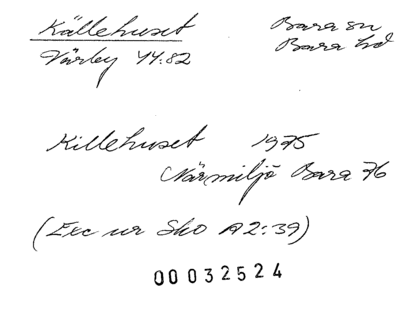 Källehuset Bara sn
Värby 44:82 Bara hd
Killehuset 1975
Närmiljö Bara 76
(Exc ur Sko A2:39)
00032524